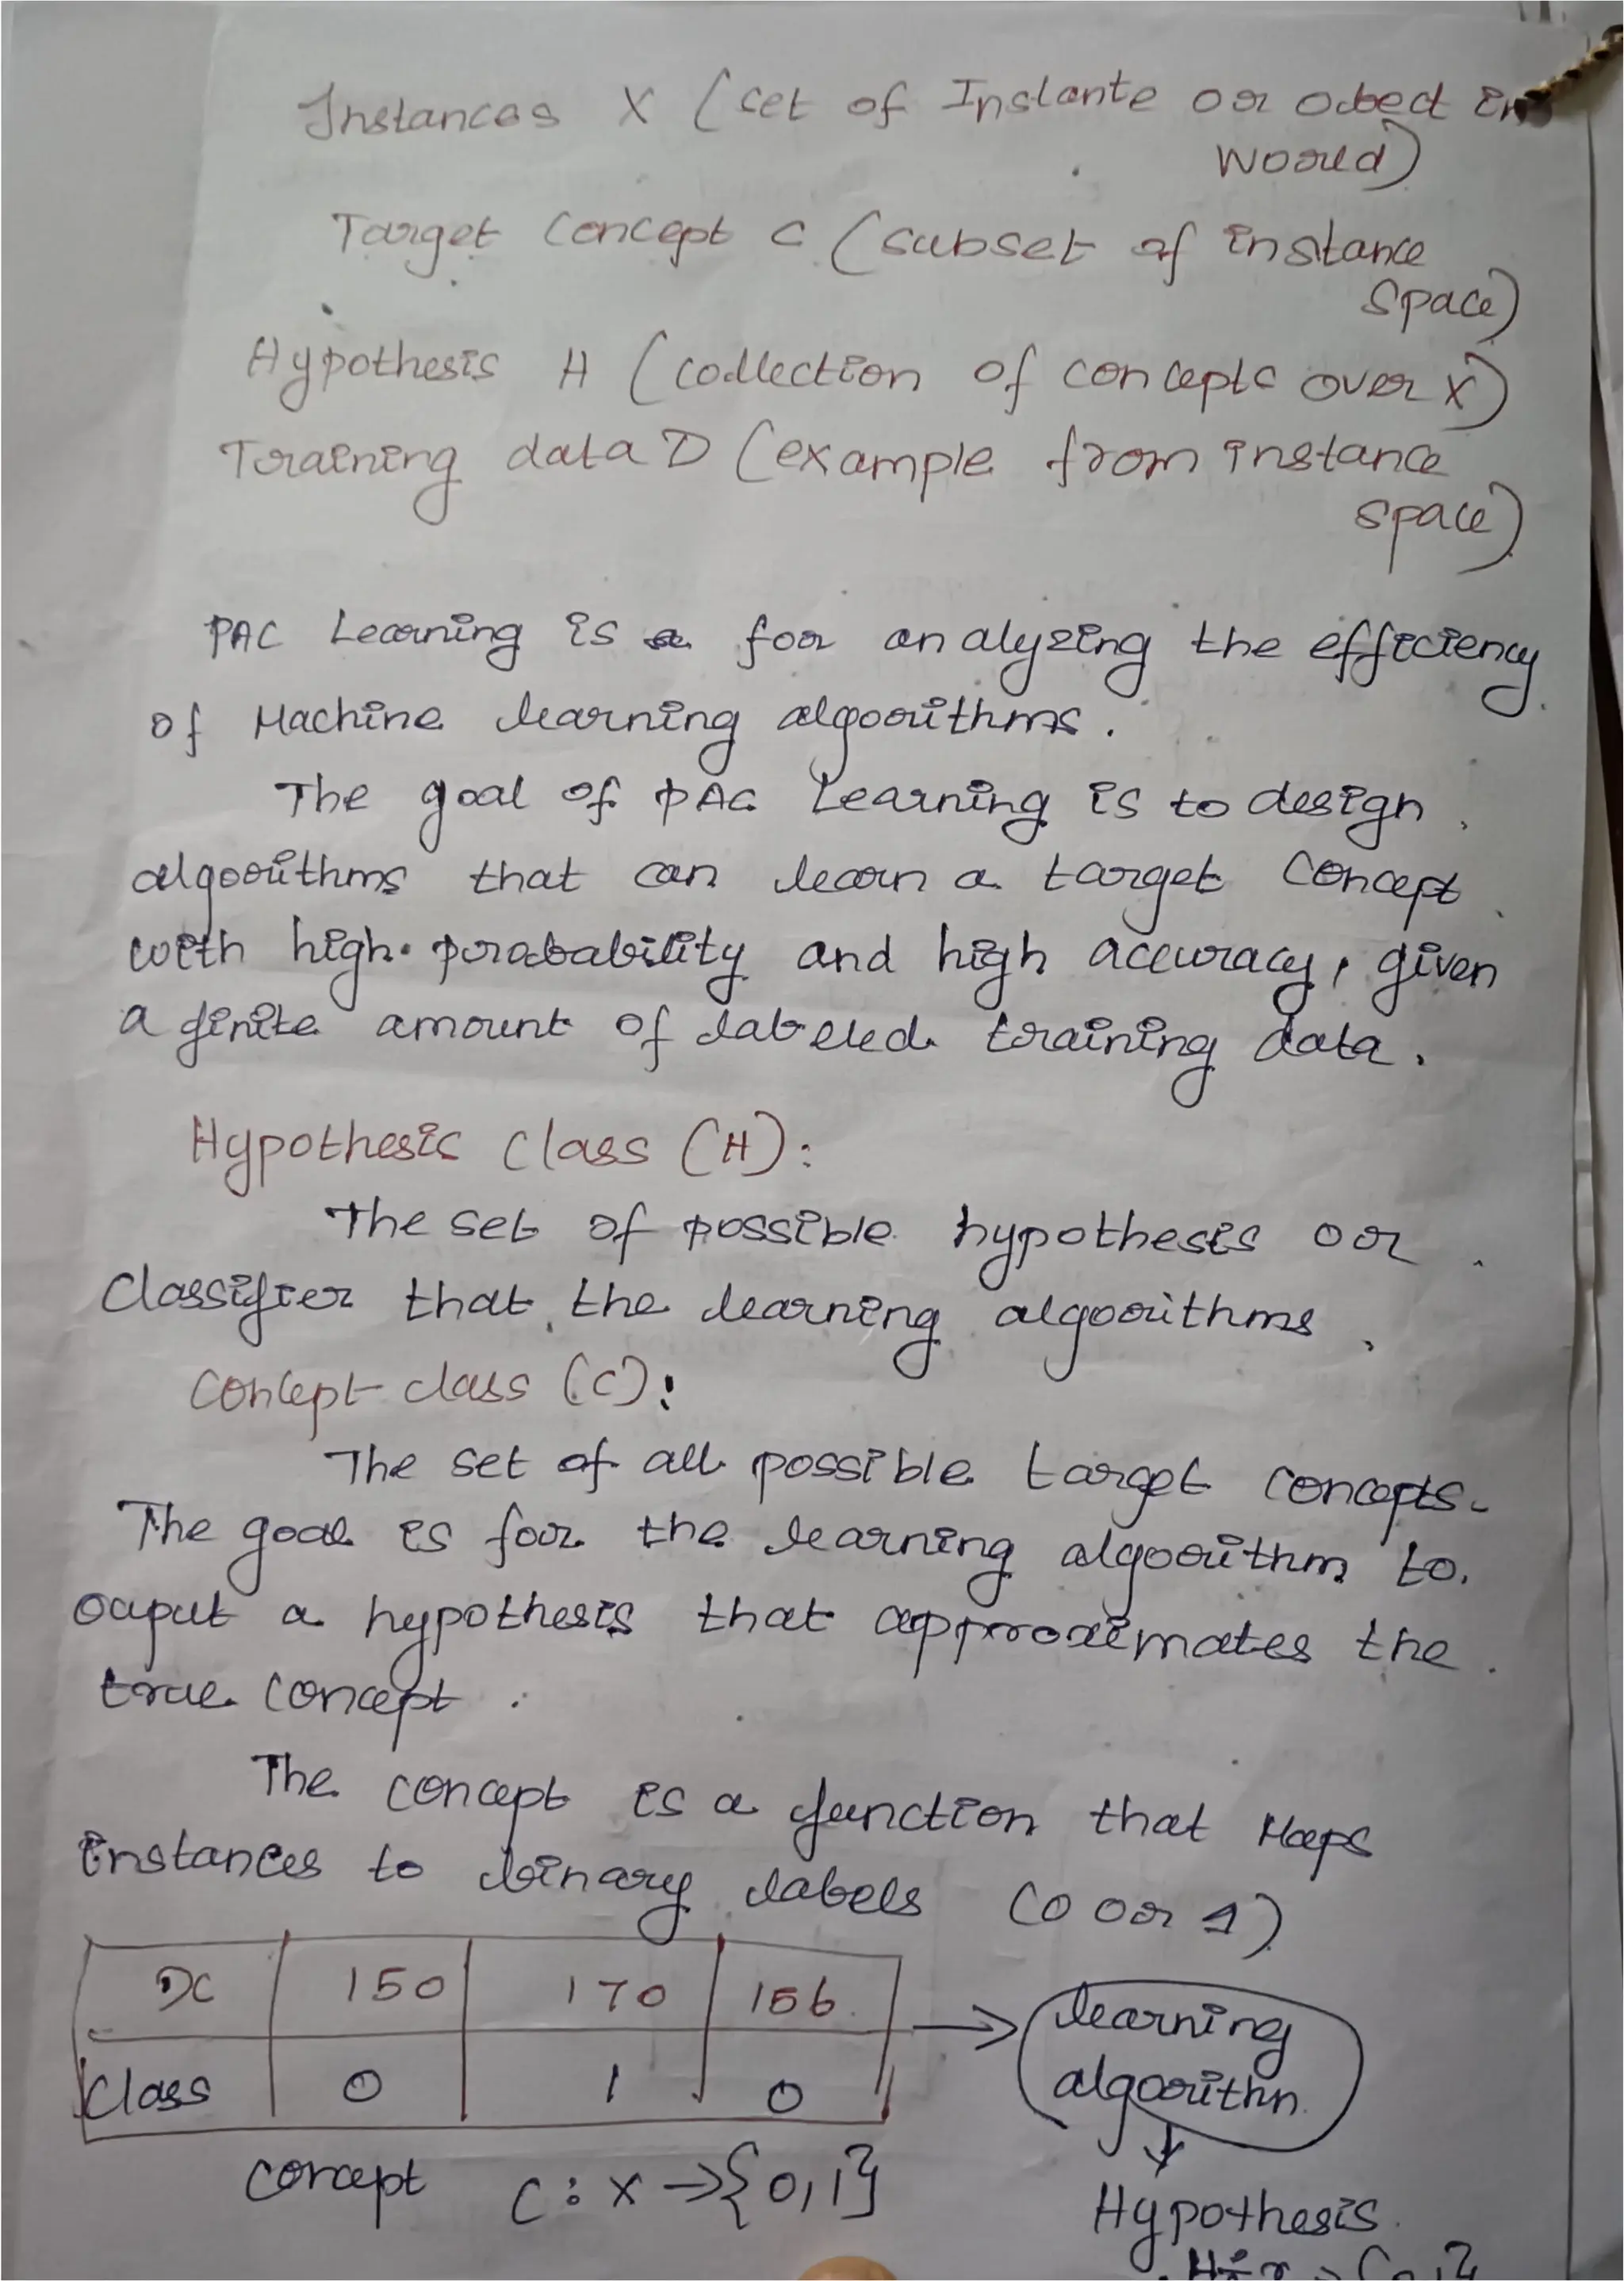 Instances X (set of Instante or obect in
World)
Target Concept C (subset of instance
Space)
Hypothesis H (collection of concepts over X)
Training data D (example from instance
space)
PAC Learning is a for analyzing the efficiency
of Machine learning algorithms.
The goal of PAC Learning is to design
algorithms that can learn a target Concept
with high probability and high accuracy, given
a finite amount of labeled training data.
Hypothesis Class (H):
The set of possible hypothesis or
Classifier that the learning algorithms
Concept class (C):
The set of all possible target concepts.
The goal is for the learning algorithm to
ouput a hypothesis that approximates the
true concept.
The concept is a function that Maps
instances to binary labels (0 or 1)
x 150 170 156 → learning
Class 0 1 0 algorithn
Concept C : X → {0,1}
Hypothesis
H : x → {0,1}